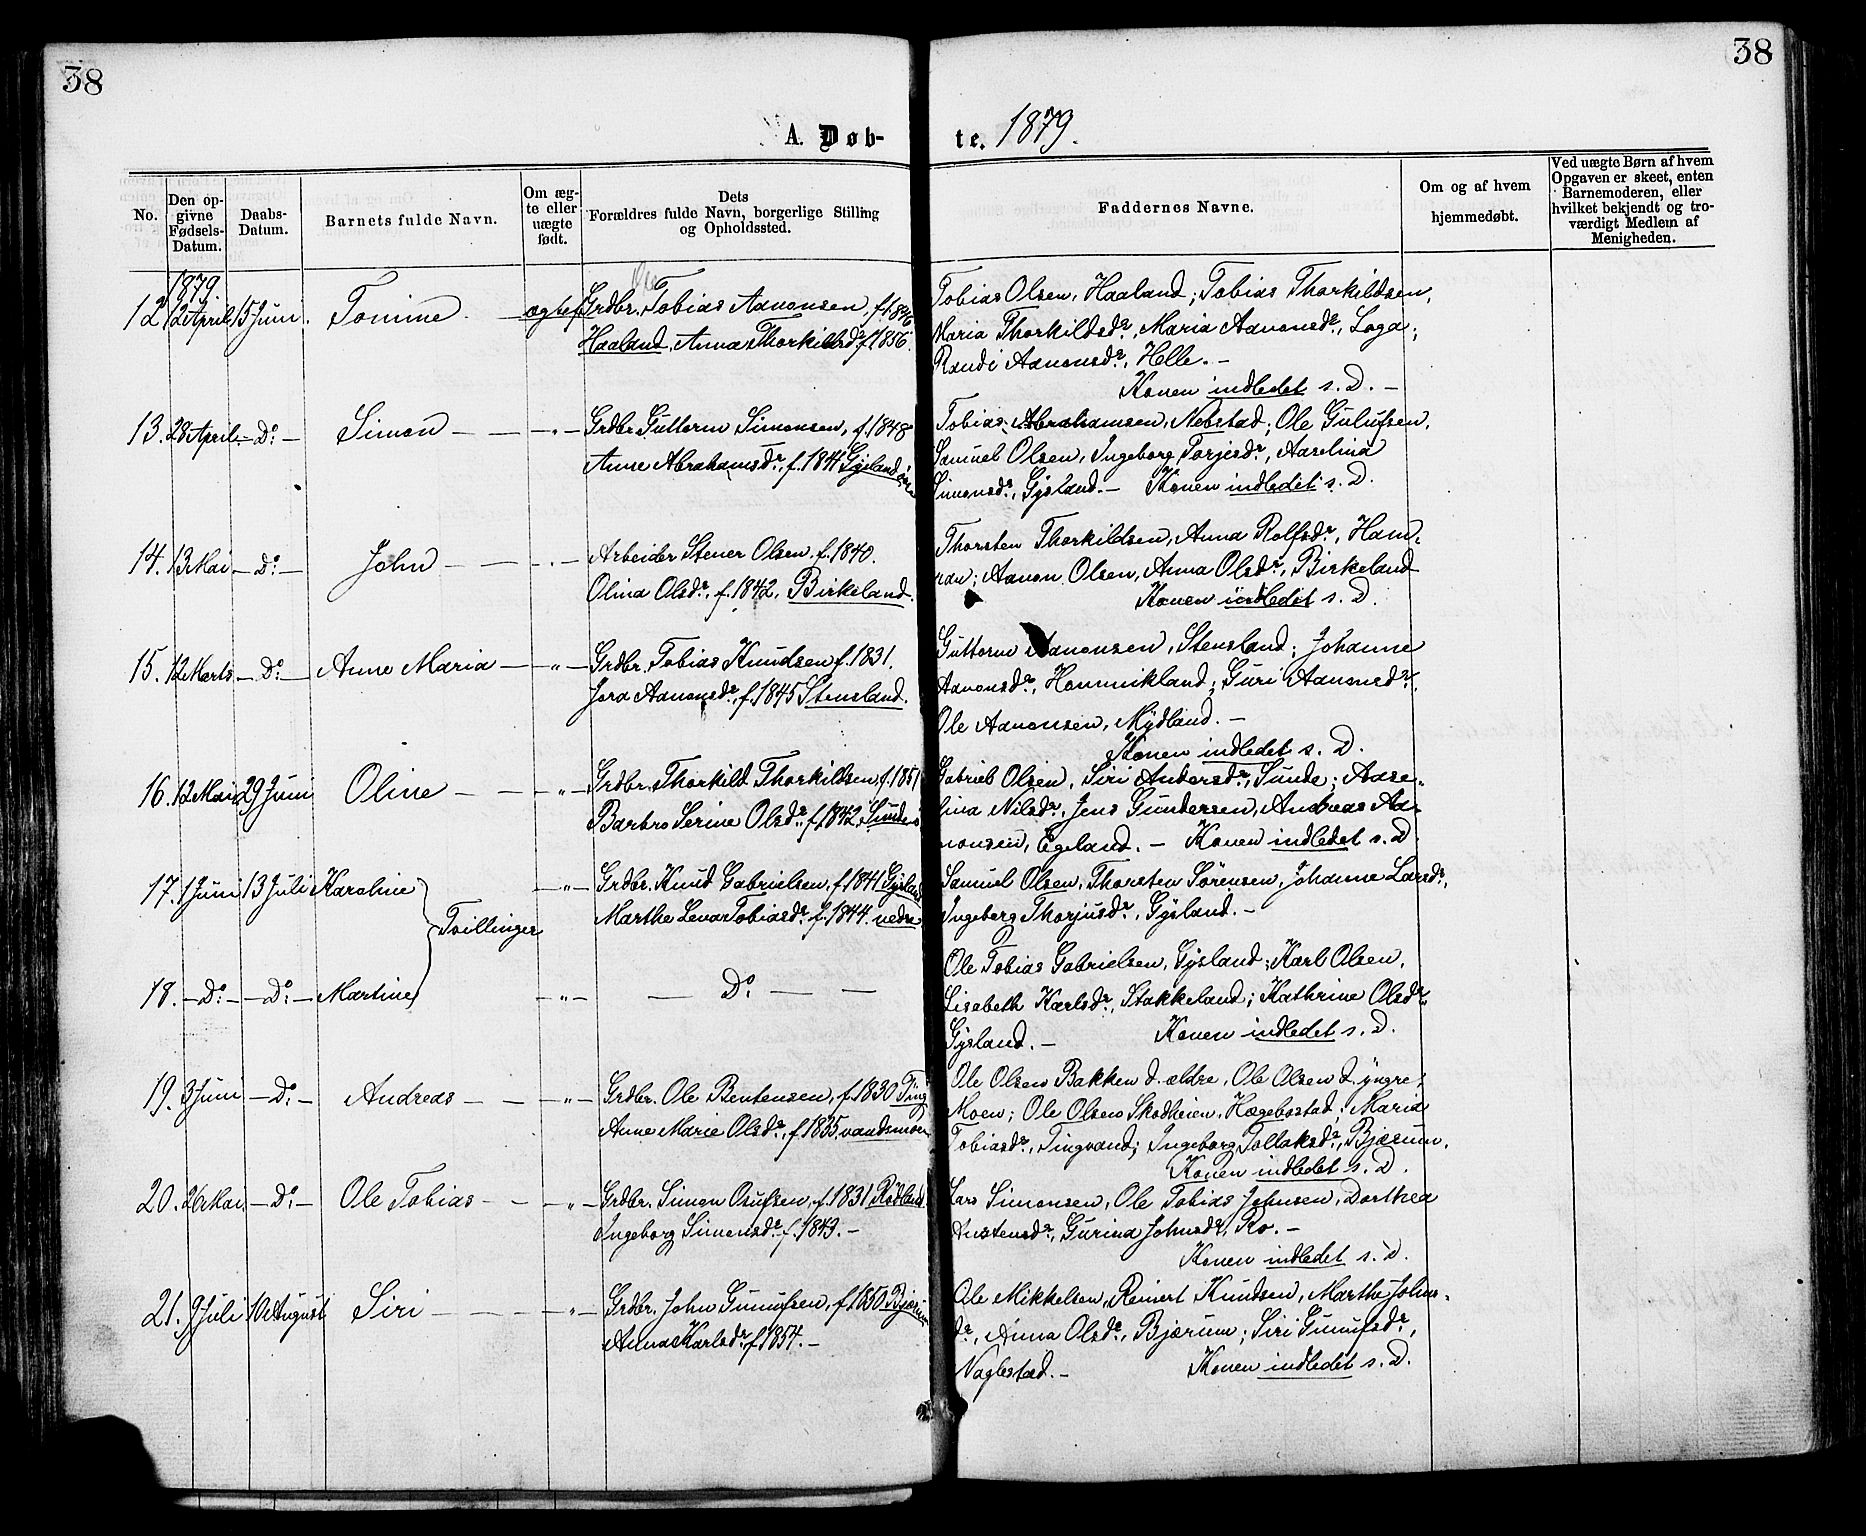 38
38
A. Døb-
te. 1879.
No.
Den op-
givne
Fødsels-
Datum.
Daabs-
Datum.
Barnets fulde Navn.
Om æg-
te eller
uægte
født.
Dets
Forældres fulde Navn, borgerlige Stilling
og Opholdssted.
Faddernes Navne.
Om og af hvem
hjemmedøbt.
Ved uægte Børn af hvem
Opgaven er skeet, enten
Barnemoderen, eller
hvilket bekjendt og tro-
værdigt Medlem af
Menigheden.
1879
12 12 April. 15 Juni. Tomine. — ægtef. Grdbr. Tobias Aanonsen, f. 1846
Haaland, Anna Thorkildsdr f. 1856.
Tobias Olsen, Haaland; Tobias Thorkildsen,
Maria Thorkildsdr, Maria Aanonsdr, Loga;
Randi Aanonsdr, Helle. —
Konen indledet s. D. —
13. 28 April. — Do — Simon — — „ — Grdbr. Guttorm Simonsen, f. 1848
Anne Abrahamsdr, f. 1841 Gysland
Tobias Abrahamsen, Nebstad; Ole Gulufsen,
Samuel Olsen, Ingeborg Torjesdr, Aaselina
Simonsdr, Gysland. — Konen indledet s. D.
14. 13 Mai — Do — John — — „ — Arbeider Stener Olsen, f. 1840.
Olina Olsdr, f. 1842, Birkeland.
Thorsten Thorkildsen, Anna Rolfsdr, Ham-
ran; Aanon Olsen, Anna Olsdr, Birkeland
Konen indledet s. D.
15. 12 Marts — Do — Anne Maria — „ — Grdbr. Tobias Knudsen f. 1831.
Jora Aanonsdr, f. 1845 Stensland.
Guttorm Aanonsen, Stensland; Johanne
Aanonsdr, Hommikland; Guri Aanonsdr,
Ole Aanonsen, Mydland. —
Konen indledet s. D.
16. 12 Mai 29 Juni Oline — — „ — Grdbr. Thorkild Thorkildsen, f. 1851
Barbro Serine Olsdr f. 1842, Sunde
Gabriel Olsen, Siri Andersdr, Sunde; Aase-
lina Nilsdr, Jens Gundersen, Andreas Aa-
nonsen, Egeland. — Konen indledet s. D
17. 1 Juni 13 Juli Karoline — „ — Grdbr. Knud Gabrielsen, f. 1841 Gysland
Tvillinger
Marthe Lena Tobiasdr, f. 1844. nedre
Samuel Olsen, Thorsten Sørensen, Johanne Larsdr,
Ingeborg Thorjusdr, Gysland. —
18. — Do — — Do — Martine — „ — — Do — —
Ole Tobias Gabrielsen, Gysland; Karl Olsen,
Lisebeth Karlsdr, Stakkeland; Kathrine Olsdr
Gysland. — Konen indledet s. D.
19. 3 Juni — Do — Andreas — — „ — Grdbr. Ole Bentensen, f. 1830 Ting
Anne Marie Olsdr, f. 1835. vandsmoen
Ole Olsen Bakken d. ældre, Ole Olsen d. yngre,
Moen; Ole Olsens Skodheien, Hægebostad; Maria
Tobiasdr, Tingvand; Ingeborg Tollaksdr, Bjærum.
Konen indledet s. D.
20. 26 Mai. — Do — Ole Tobias — — „ — Grdbr. Simon Osufsen, f. 1831 Rødland
Ingeborg Simonsdr f. 1843. —
Lars Simonsen, Ole Tobias Johnsen, Dorthea
Austensdr, Gurina Johnsdr, Ro. —
Konen indledet s. D.
21. 9 Juli 10 August Siri — — „ — Grdbr. John Gunufsen, f. 1850. Bjærum
Anna Karlsdr f. 1854. —
Ole Mikkelsen, Reinert Knudsen, Marthe Johns-
dr, Anna Olsdr, Bjærum; Siri Gunufsdr,
Naglestad. — Konen indledet s. D.